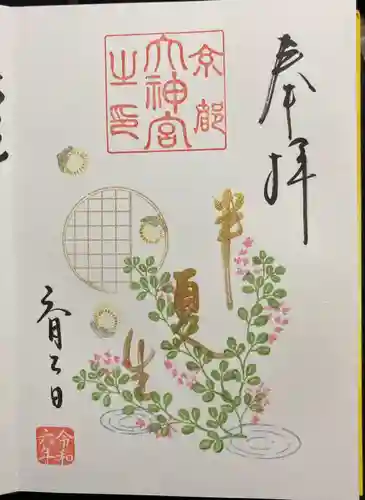 奉拝
京都
六神宮
之印
半夏生
六月二日
令和
六年